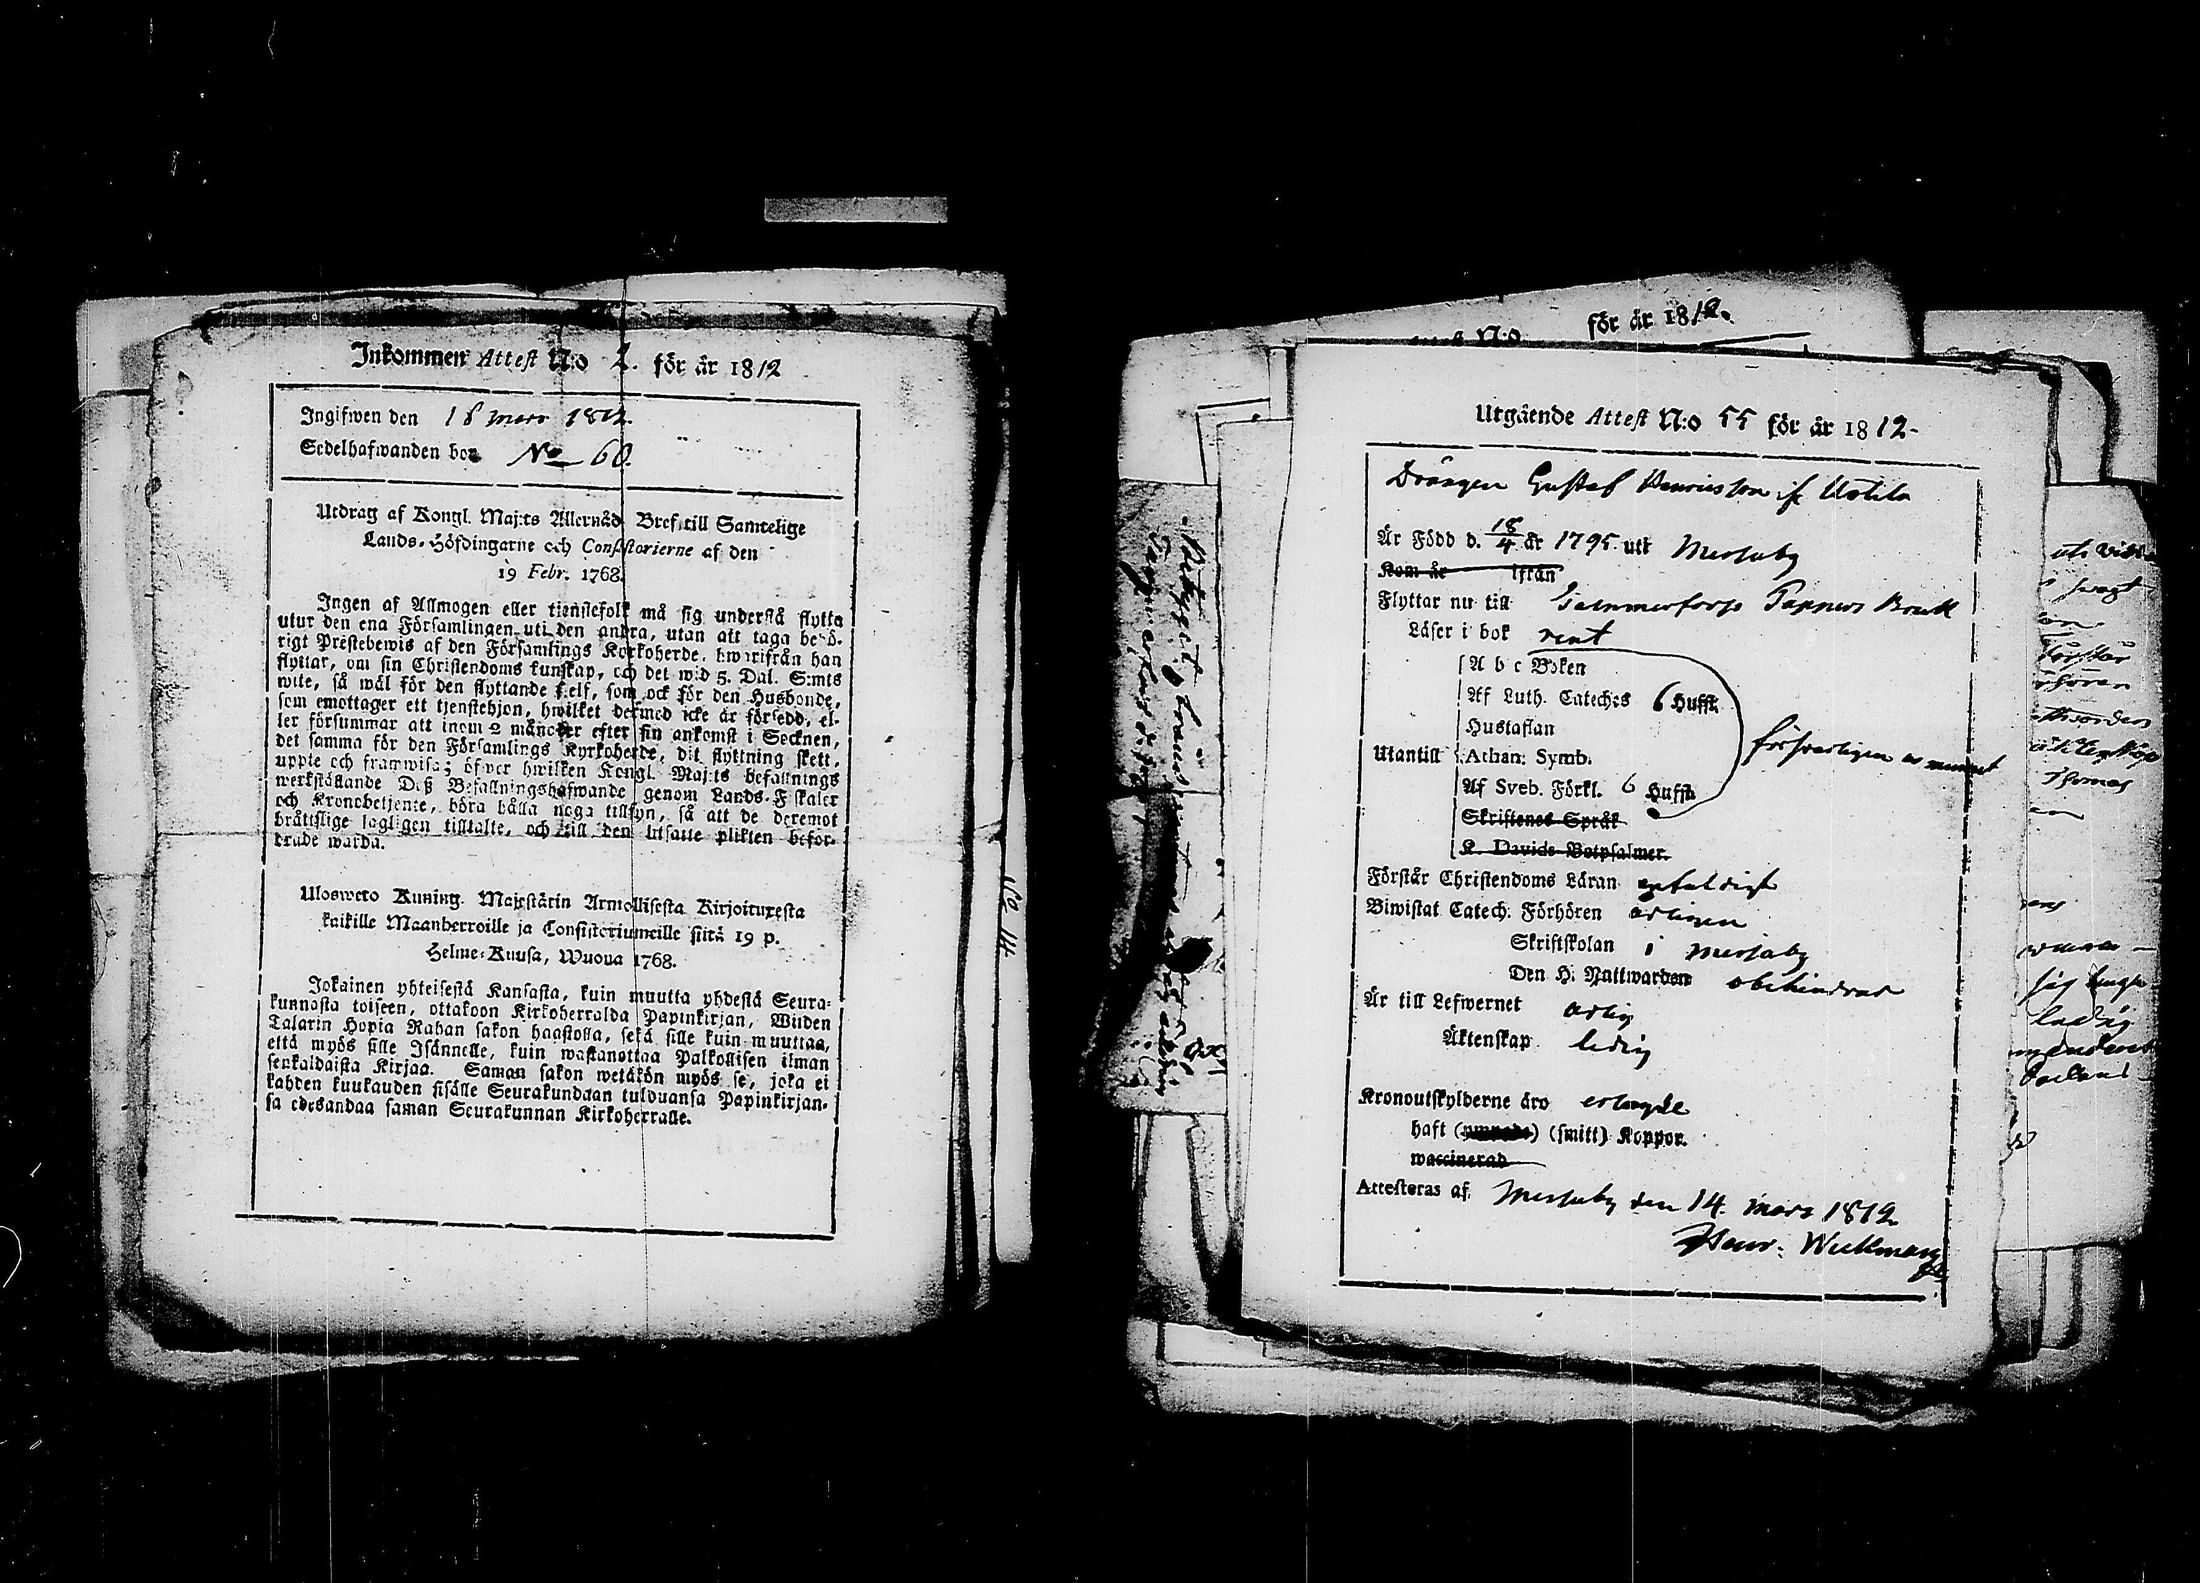 Inkommen Attest N:o 2. för år 1812
Ingifwen den 16 mars 1812.
Sedelhafwanden bor No 60.
Utdrag af Kongl. Maj:ts Allernåd. Bref till Samtelige
Lands-Höfdingarne och Consistorierne af den
19 Febr. 1768.
Ingen af Allmogen eller tienstefolk må sig understå flytta
utur den ena Församlingen uti den andra, utan att taga behö-
rigt Prestebewis af den Församlings Kyrkoherde, hwarifrån han
flyttar, om sin Christendoms kunskap, och det wid 5. Dal. S:mts
wite, så wäl för den flyttande sielf, som ock för den Husbonde,
som emottager ett tjenstehjon, hwilket dermed icke är försedd, el-
ler försummar att inom 2 månader efter sin ankomst i Socknen,
det samma för den Församlings Kyrkoherde, dit flyttning skett,
uppte och framwisa; öfwer hwilken Kongl. Maj:ts befallnings
werkställande Deß Befallningshafwande genom Lands-Fiskaler
och Kronobetjente, böra hålla noga tillsyn, så att de deremot
bråttslige lagligen tilltalte, och till den utsatte plikten befor-
drade warda.
Ulosweto Kuning. Majestätin Armollisesta Kirjoituxesta
kaikille Maanherroille ja Consistoriumeille siitä 19 p.
Helme-Kuusa, Wuona 1768.
Jokainen yhteisestä Kansasta, kuin muutta yhdestä Seura-
kunnasta toiseen, ottakoon Kirkoherralda Papinkirjan, Wiiden
Talarin Hopia Rahan sakon haastolla, sekä sille kuin muuttaa,
että myös sille Isännelle, kuin wastanottaa Palkollisen ilman
senkaldaista Kirjaa. Saman sakon wetäkön myös se, joka ei
kahden kuukauden sisälle Seurakundaan tulduansa Papinkirjan-
sa edesandaa saman Seurakunnan Kirkoherralle.
N:o för år 1812.
Utgående Attest N:o 55 för år 1812-
Drängen Gustaf Henricsson
Är Född d. 18/4 år 1795. utt Messuby
Kom år ifrån
Flyttar nu till Tammerfors Pappers Bruk
Läser i bok rent
A b c Boken
Af Luth. Cateches 6 Hufst.
Hustaflan
Utantill Athan: Symb.
Af Sveb. Förkl. 6 Hufst.
försvarligen
Skriftenes Språk
K. Davids Botpsalmer.
Förstår Christendoms Läran enfaldigt
Biwistat Catech: Förhören årligen
Skriftskolan i Messuby
Den H. Nattwarden obehindrad
Är till Lefwernet ärlig
Äktenskap ledig
Kronoutskylderne äro erlagde
haft (ympade) (smitt) Koppor.
waccinerad
Attesteras af Messuby den 14. mars 1812.
Henr: Wickman